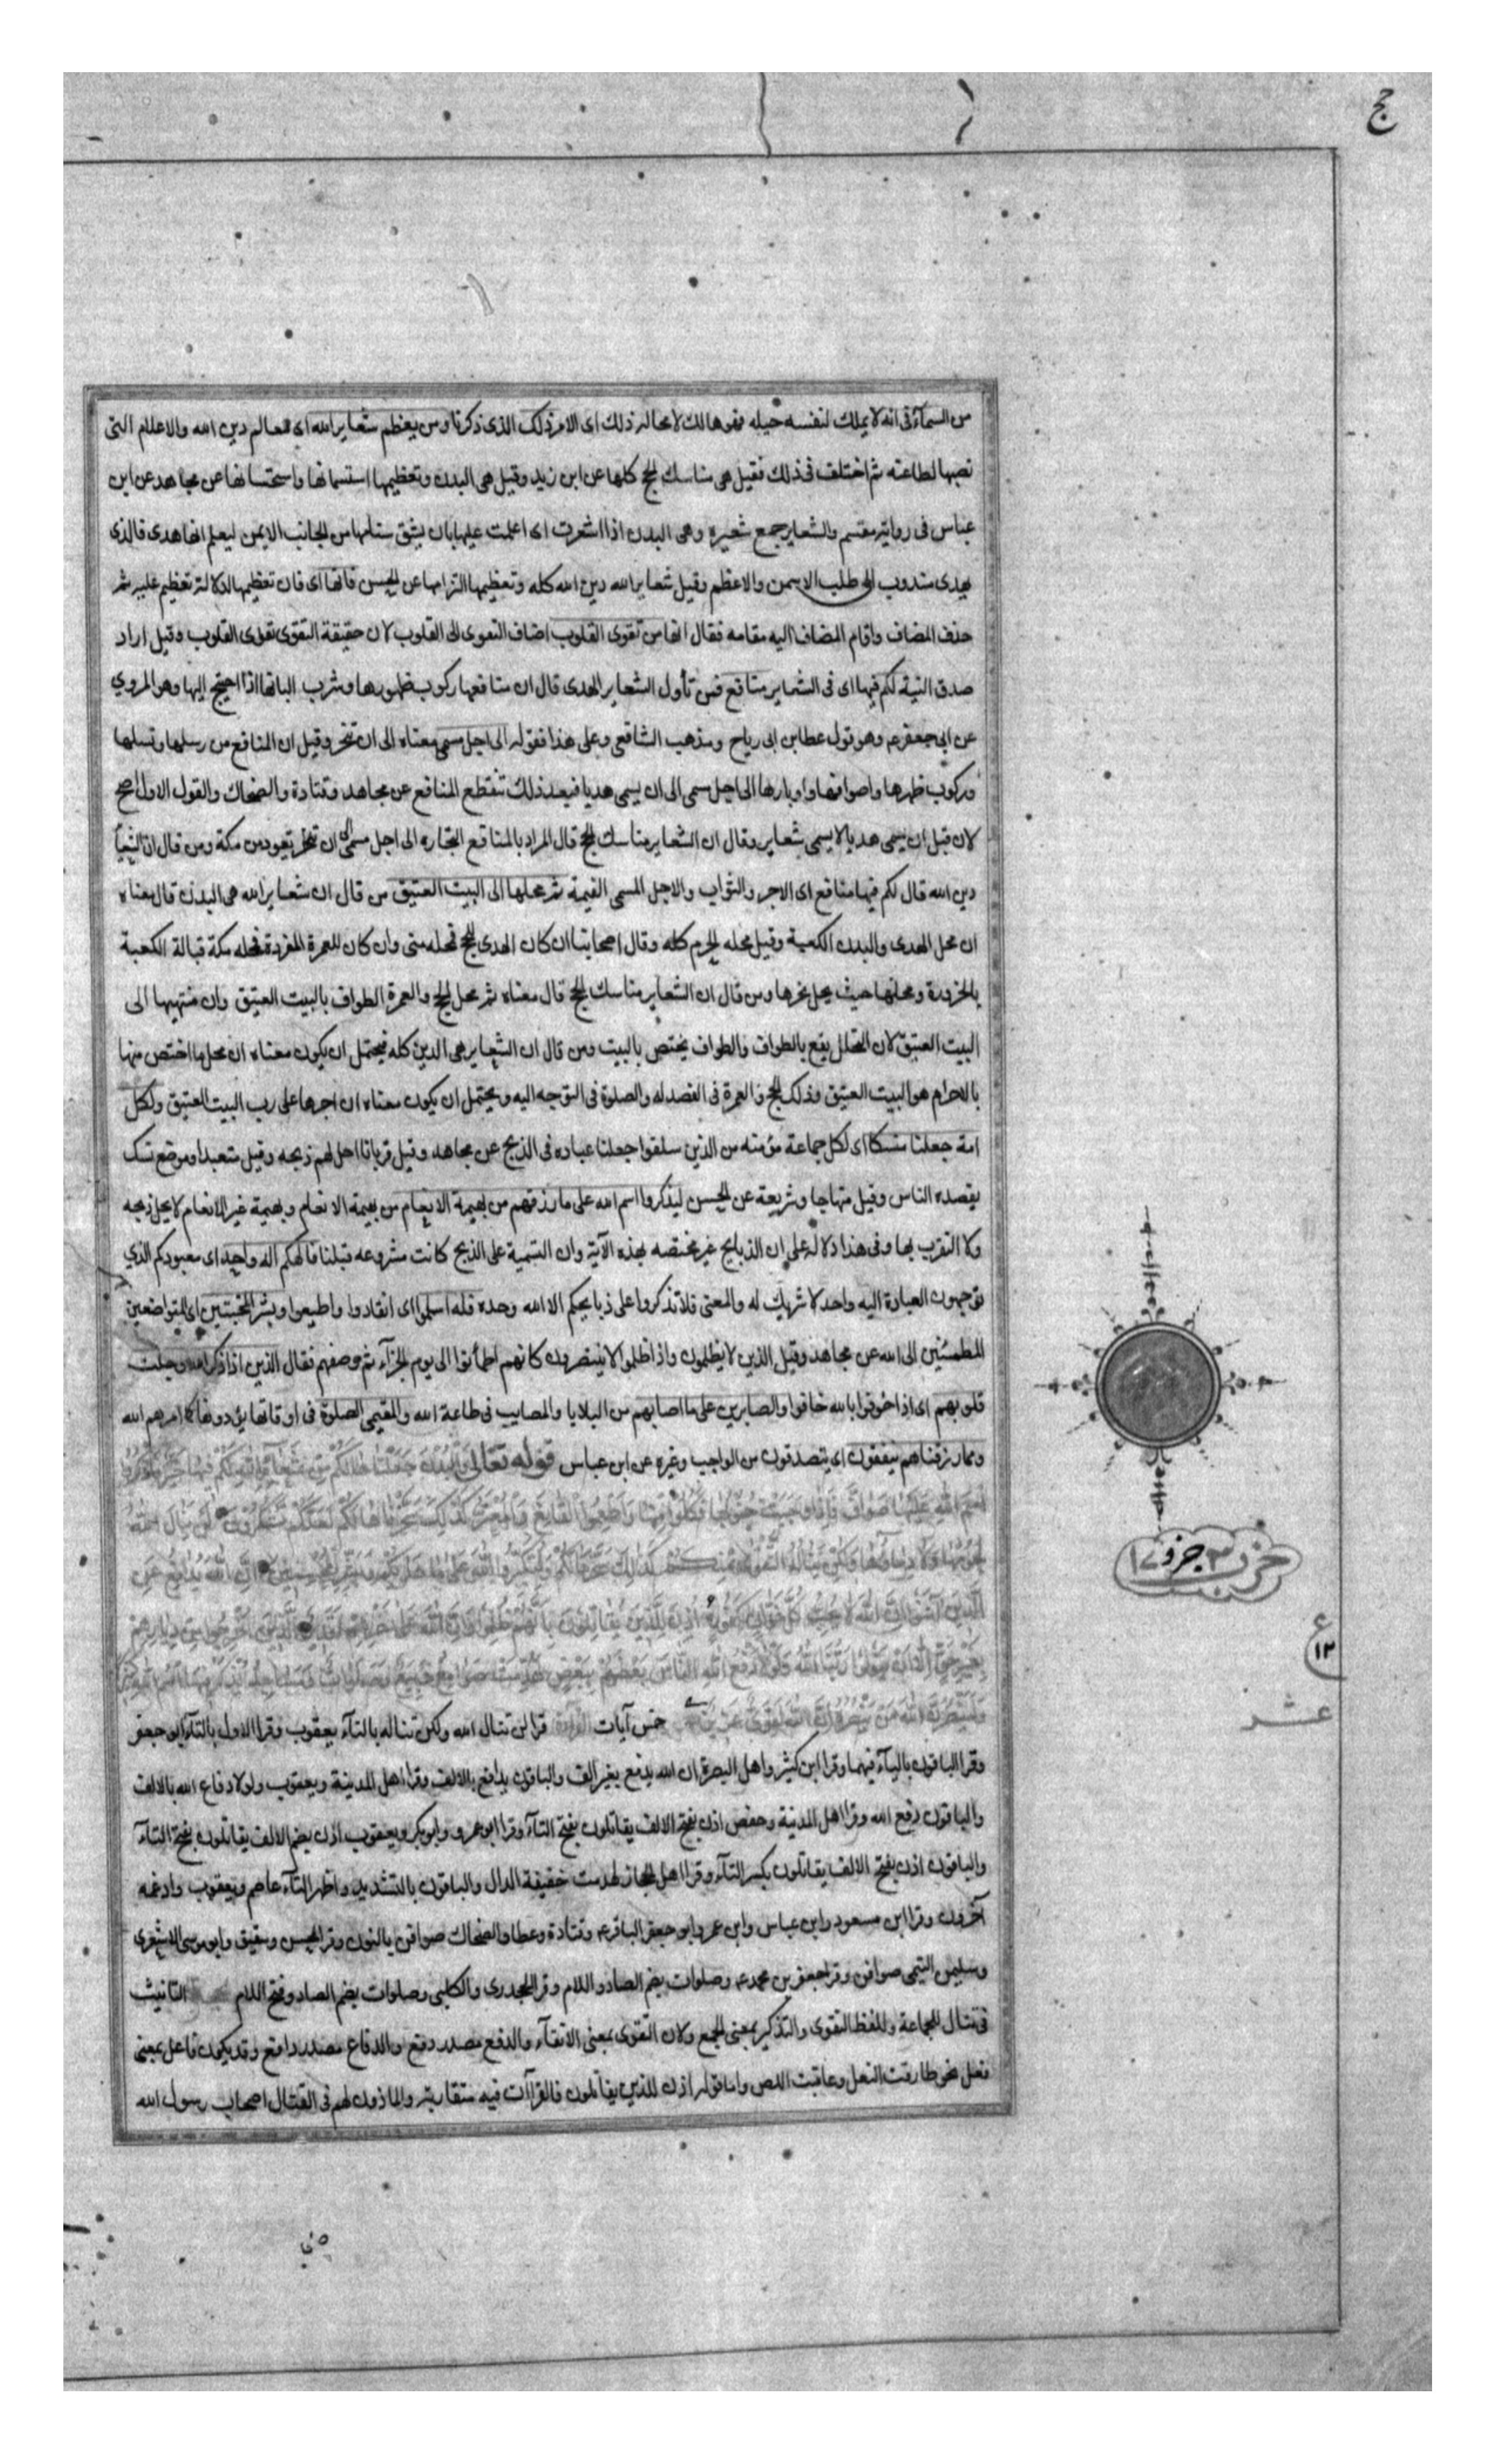 حج
من السمآء فی انه لا يملك لنفسه حيله فهو هالك لا محاله ذلك ای الامر ذلك الذی ذكرنا ومن يعظم شعاير الله ای معالم دين الله والاعلام التی
نصبها لطاعته ثم اختلف فی ذلك فقيل هی مناسك الحج كلها عن ابن زيد وقيل هی البدن وتعظيمها استسمانها واستحسانها عن مجاهد عن ابن
عباس فی رواية مقسم والشعاير جمع شعيره وهی البدن اذا اشعرت ای اعلمت عليها بان يشق سنامها من الجانب الايمن ليعلم انها هدی فالذی
يهدی مندوب الی طلب الاسمن والاعظم وقيل شعاير الله دين الله كله وتعظيمها التزامها عن الحسن فانها ای فان تعظيمها لدلالة تعظيم عليه ثم
حذف المضاف واقام المضاف اليه مقامه فقال انها من تقوی القلوب اضاف التقوی الی القلوب لان حقيقة التقوی تقوی القلوب وقيل اراد
صدق النية لكم فيها ای فی الشعاير منافع فمن تأول الشعاير الهدی قال ان منافعها ركوب ظهورها وشرب البانها اذا احتيج اليها وهو المروي
عن ابی جعفر ع وهو قول عطا بن ابی رباح ومذهب الشافعی وعلی هذا فقوله الی اجل مسمی معناه الی ان تنحر وقيل ان المنافع من رسلها ونسلها
وركوب ظهرها واصوافها واوبارها الی اجل مسمی الی ان يسمی هديا فبعد ذلك تنقطع المنافع عن مجاهد وقتادة والضحاك والقول الاول اصح
لان قبل ان يسمی هديا لا يسمی شعاير وقال ان الشعاير مناسك الحج قال المراد بالمنافع التجاره الی اجل مسمی الی ان تعود من مكة ومن قال ان الشعاير
دين الله قال لكم فيها منافع ای الاجر والثواب والاجل المسمی القيمة ثم محلها الی البيت العتيق من قال ان شعاير الله هی البدن قال معناه
ان محل الهدی والبدن الكعبة وقيل محله الحرم كله وقال اصحابنا ان كان الهدی للحج فمحله منی وان كان للعمرة المفردة فمحله مكة قبالة الكعبة
بالحزورة ومحلها حيث يحل نحرها ومن قال ان الشعاير مناسك الحج قال معناه ثم محل الحج والعمرة الطواف بالبيت العتيق وان منتهيها الی
البيت العتيق لان التحلل يقع بالطواف والطواف يختص بالبيت ومن قال ان الشعاير هی الدين كله فيحتمل ان يكون معناه ان محل ما اختص منها
بالاحرام هو البيت العتيق وذلك الحج والعمرة فی القصد له والصلوة فی التوجه اليه ويحتمل ان يكون معناه ان اجرها علی رب البيت العتيق ولكل
امة جعلنا منسكا ای لكل جماعة مؤمنه من الذين سلفوا جعلنا عباده فی الذبح عن مجاهد وقيل قربانا احل لهم ذبحه وقيل متعبدا وموضع نسك
يقصده الناس وقيل منهاجا وشريعة عن الحسن ليذكروا اسم الله علی ما رزقهم من بهيمة الانعام من بهيمة الانعام وبهيمة غير الانعام لا يحل ذبحه
ولا التقرب بها وفی هذا دلالة علی ان الذبايح غير مختصه بهذه الآية وان التسمية علی الذبح كانت مشروعه قبلنا فالهكم اله واحد ای معبودكم الذي
توجهون العبادة اليه واحد لا شريك له والمعنی فلا تذكروا علی ذبايحكم الا الله وحده فله اسلموا ای انقادوا واطيعوا وبشر المخبتين ای المتواضعين
المطمئنين الی الله عن مجاهد وقيل الذين لا يظلمون واذا ظلموا لا ينتصرون كانهم اطمأنوا الی يوم الجزآء ثم وصفهم فقال الذين اذا ذكر الله وجلت
قلوبهم ای اذا خوفوا بالله خافوا والصابرين علی ما اصابهم من البلايا والمصايب فی طاعة الله والمقيمی الصلوة فی اوقاتها يؤدونها كما امرهم الله
ومما رزقناهم ينفقون ای يتصدقون من الواجب وغيره عن ابن عباس قوله تعالی والبدن جعلناها لكم من شعائر الله لكم فيها خير فاذكروا
اسم الله عليها صواف فاذا وجبت جنوبها فكلوا منها واطعموا القانع والمعتر كذلك سخرناها لكم لعلكم تشكرون لن ينال الله
لحومها ولا دماؤها ولكن يناله التقوی منكم كذلك سخرها لكم لتكبروا الله علی ما هديكم وبشر المحسنين ان الله يدافع عن
الذين آمنوا ان الله لا يحب كل خوان كفور اذن للذين يقاتلون بانهم ظلموا وان الله علی نصرهم لقدير الذين اخرجوا من ديارهم
بغير حق الا ان يقولوا ربنا الله ولولا دفع الله الناس بعضهم ببعض لهدمت صوامع وبيع وصلوات ومساجد يذكر فيها اسم الله كثيرا
ولينصرن الله من ينصره ان الله لقوی عزيز خمس آيات القراءة قرا لن تنال الله ولكن تناله بالتآء يعقوب وقرا الاول بالتآء ابو جعفر
وقرا الباقون باليآء فيهما وقرا ابن كثير واهل البصرة ان الله يدفع بغير الف والباقون يدافع بالالف وقرا اهل المدينة ويعقوب ولولا دفاع الله بالالف
والباقون دفع الله وقرا اهل المدينة وحفص اذن بضم الالف يقاتلون بفتح التآء وقرا ابو عمرو وابو بكر ويعقوب اذن بضم الالف يقاتلون بفتح التآء
والباقون اذن بفتح الالف يقاتلون بكسر التآء وقرا اهل الحجاز لهدمت خفيفة الدال والباقون بالتشديد واظهر التآء عاصم ويعقوب وادغمه
آخرون وقرا ابن مسعود وابن عباس وابن عمر وابو جعفر الباقر ع وقتادة وعطا والضحاك صوافن بالنون وقرا الحسن وشقيق وابو موسی الاشعری
وسليمن التيمی صوافی وقرا جعفر بن محمد ع وصلوات بضم الصاد واللام وقرا الجحدری والكلبی وصلوات بضم الصاد وفتح اللام التانيث
فی تنال للجماعة وللفظ التقوی والتذكير بمعنی الجمع ولان التقوی بمعنی الاتقآء والدفع مصدر دفع والدفاع مصدر دافع وقد يكون فاعل بمعنی
فعل نحو طارقت النعل وعاقبت اللص واما قوله اذن للذين يقاتلون فالقراآت فيه متقاربة والماذون لهم فی القتال اصحاب رسول الله
حزب ٣ جزو ١٧
ع
١٢
عشر